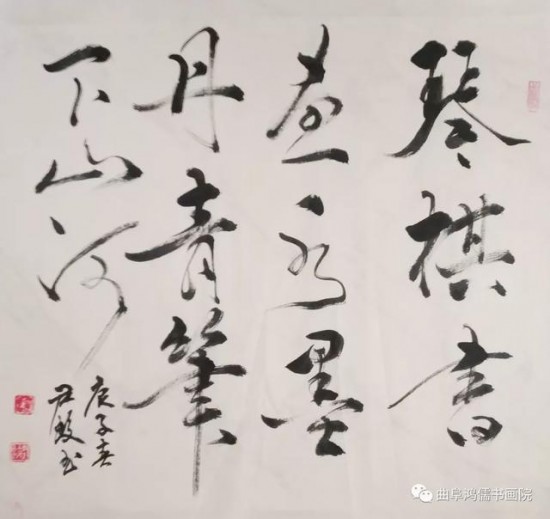 琴棋書
畫水墨
丹青筆
下山河
庚子春
尹 书
曲阜鸿儒书画院